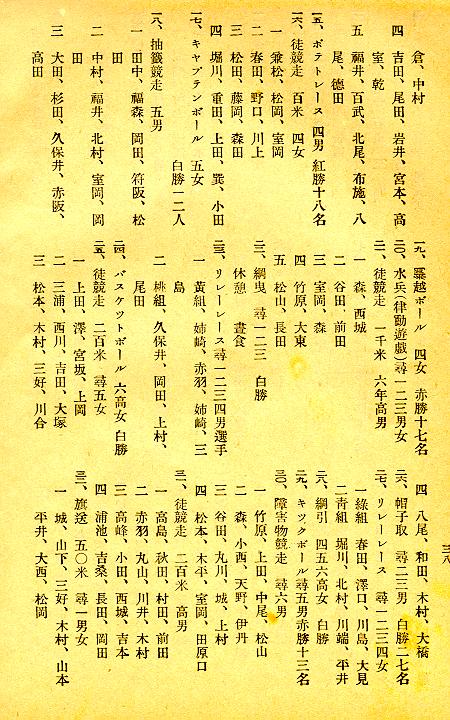 倉、中村
四 吉田、尾田、岩井、宮本、高
室、乾
五 福井、百武、北尾、布施、八
尾、德田
一五、ポテトレース 四男 紅勝十八名
一六、徒競走 百米 四女
一 兼松、松岡、室岡
二 春田、野口、川上
三 松田、藤岡、森田
四 堀川、重田、上田、巽、小田
一七、キャプテンボール 五女
白勝一二人
一八、抽籤競走 五男
一 田中、福森、岡田、符阪、松
田
二 中村、福井、北村、室岡、岡
田
三 大田、杉田、久保井、赤阪、
高田
一九、
越ボール 四女 赤勝十七名
二〇、水兵(律動遊戯)尋一二三男女
二一、徒競走 一千米 六年高男
一 森、西城
二 谷田、前田
三 室岡、森
四 竹原、大東
五 松山、長田
二二、綱曳 尋一二三 白勝
休憩 晝食
二三、リレーレース尋一二三四男選手
一 黃組、姉崎、赤羽、姉崎、三
島
二 桃組、久保井、岡田、上村、
尾田
二四、バスケットボール 六高女 白勝
二五、徒競走 二百米 尋五女
一 上田、澤、宮坂、上岡
二 三浦、西川、吉田、大塚
三 松本、木村、三好、川合
四 八尾、和田、木村、大橋
二六、帽子取 尋二三男 白勝二七名
二七、リレーレース 尋一二三四女
一 綠組 春田、澤口、川島、大見
二 靑組 堀川、北村、川端、平井
二八、綱引 四五六高女 白勝
二九、キックボール尋五男赤勝十三名
三〇、障害物競走 尋六男
一 竹原、上田、中尾、松山
二 森、小西、天野、伊丹
三 谷田、丸川、城、上村
四 松本、木平、室岡、田原口
三一、徒競走 二百米 高男
一 高島、秋田、村田、前田
二 赤羽、丸山、川井、木村
三 高峰、小田、西城、吉本
四 浦池、吉桑、長田、岡田
三二、旗送 五〇米 尋一男女
一 城、山下、三好、木村、山本
平井、大西、松岡
三八